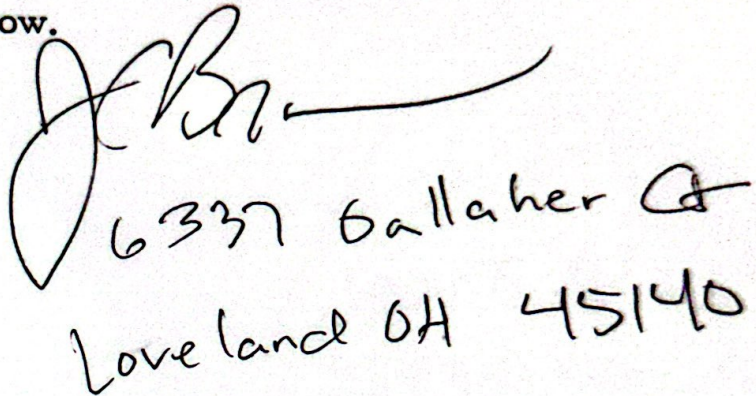 ow.
6337 Gallaher Ct
Loveland OH 45140